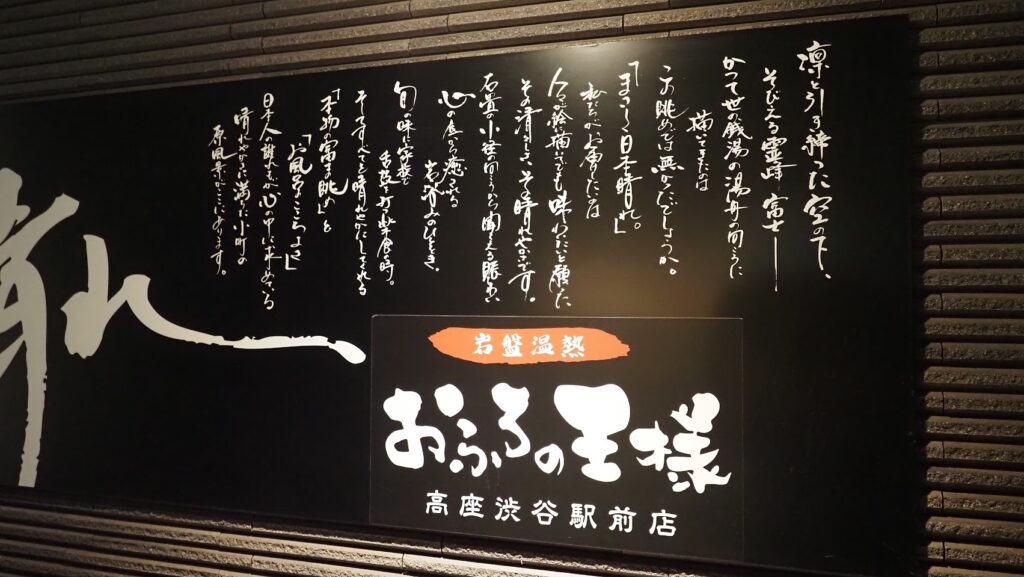 凛と引き締った空の下、
そびえる霊峰 富士―
かつて世の銭湯の湯舟の向こうに
描いてきたは
この眺めでは無かったでしょうか。
「まさしく日本晴れ。」
私たちがお届けしたいのは
人々が絵に描いてでも味わいたいと願った
その清しさ、その晴れやかさです。
石畳の小径の向うから聞える賑わい
心の底から癒される
岩浴みのひととき。
旬の味
舌鼓を打つ 食の時。
そのすべてを晴れやかにしてくれる
「本物の富士の眺め」と
「お風呂のここちよさ」
日本人誰もが心の中に求めている
晴れやかさに満ちた小町の
原風景がここにあります。
れ
岩盤温熱
おふろの王様
高座渋谷駅前店